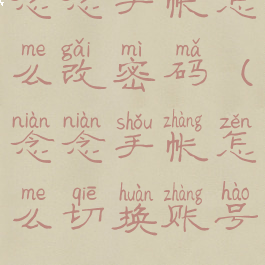 念念手帐怎
me gǎi mì mǎ
么改密码（
niàn niàn shǒu zhàng zěn
念念手帐怎
me qiē huàn zhàng hào
么切换账号